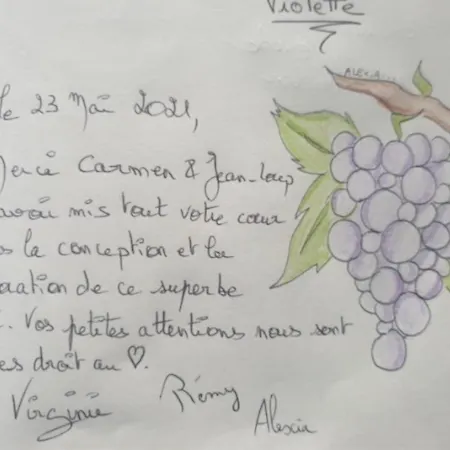 Violette
ALEXIA
le 23 Mai 2021,
Merci Carmen & Jean-Loup
avoir mis tout votre cœur
la conception et la
ration de ce superbe
. Vos petites attentions nous sont
es droit au ♡.
Virginie Rémy Alexia